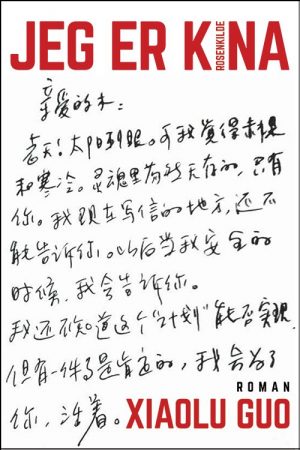 JEG ER KINA
ROSENKILDE
亲爱的木:
老天!太阳刺眼。可我觉得赤裸
和寒冷。灵魂里存在的,只有
你。我现在写信的地方,还不
能告诉你。以后当我安全的
时候,我会告诉你。
我还不知道这个“计划”能否实现,
但有一件事是肯定的,我会为了
你,活着。
ROMAN
XIAOLU GUO